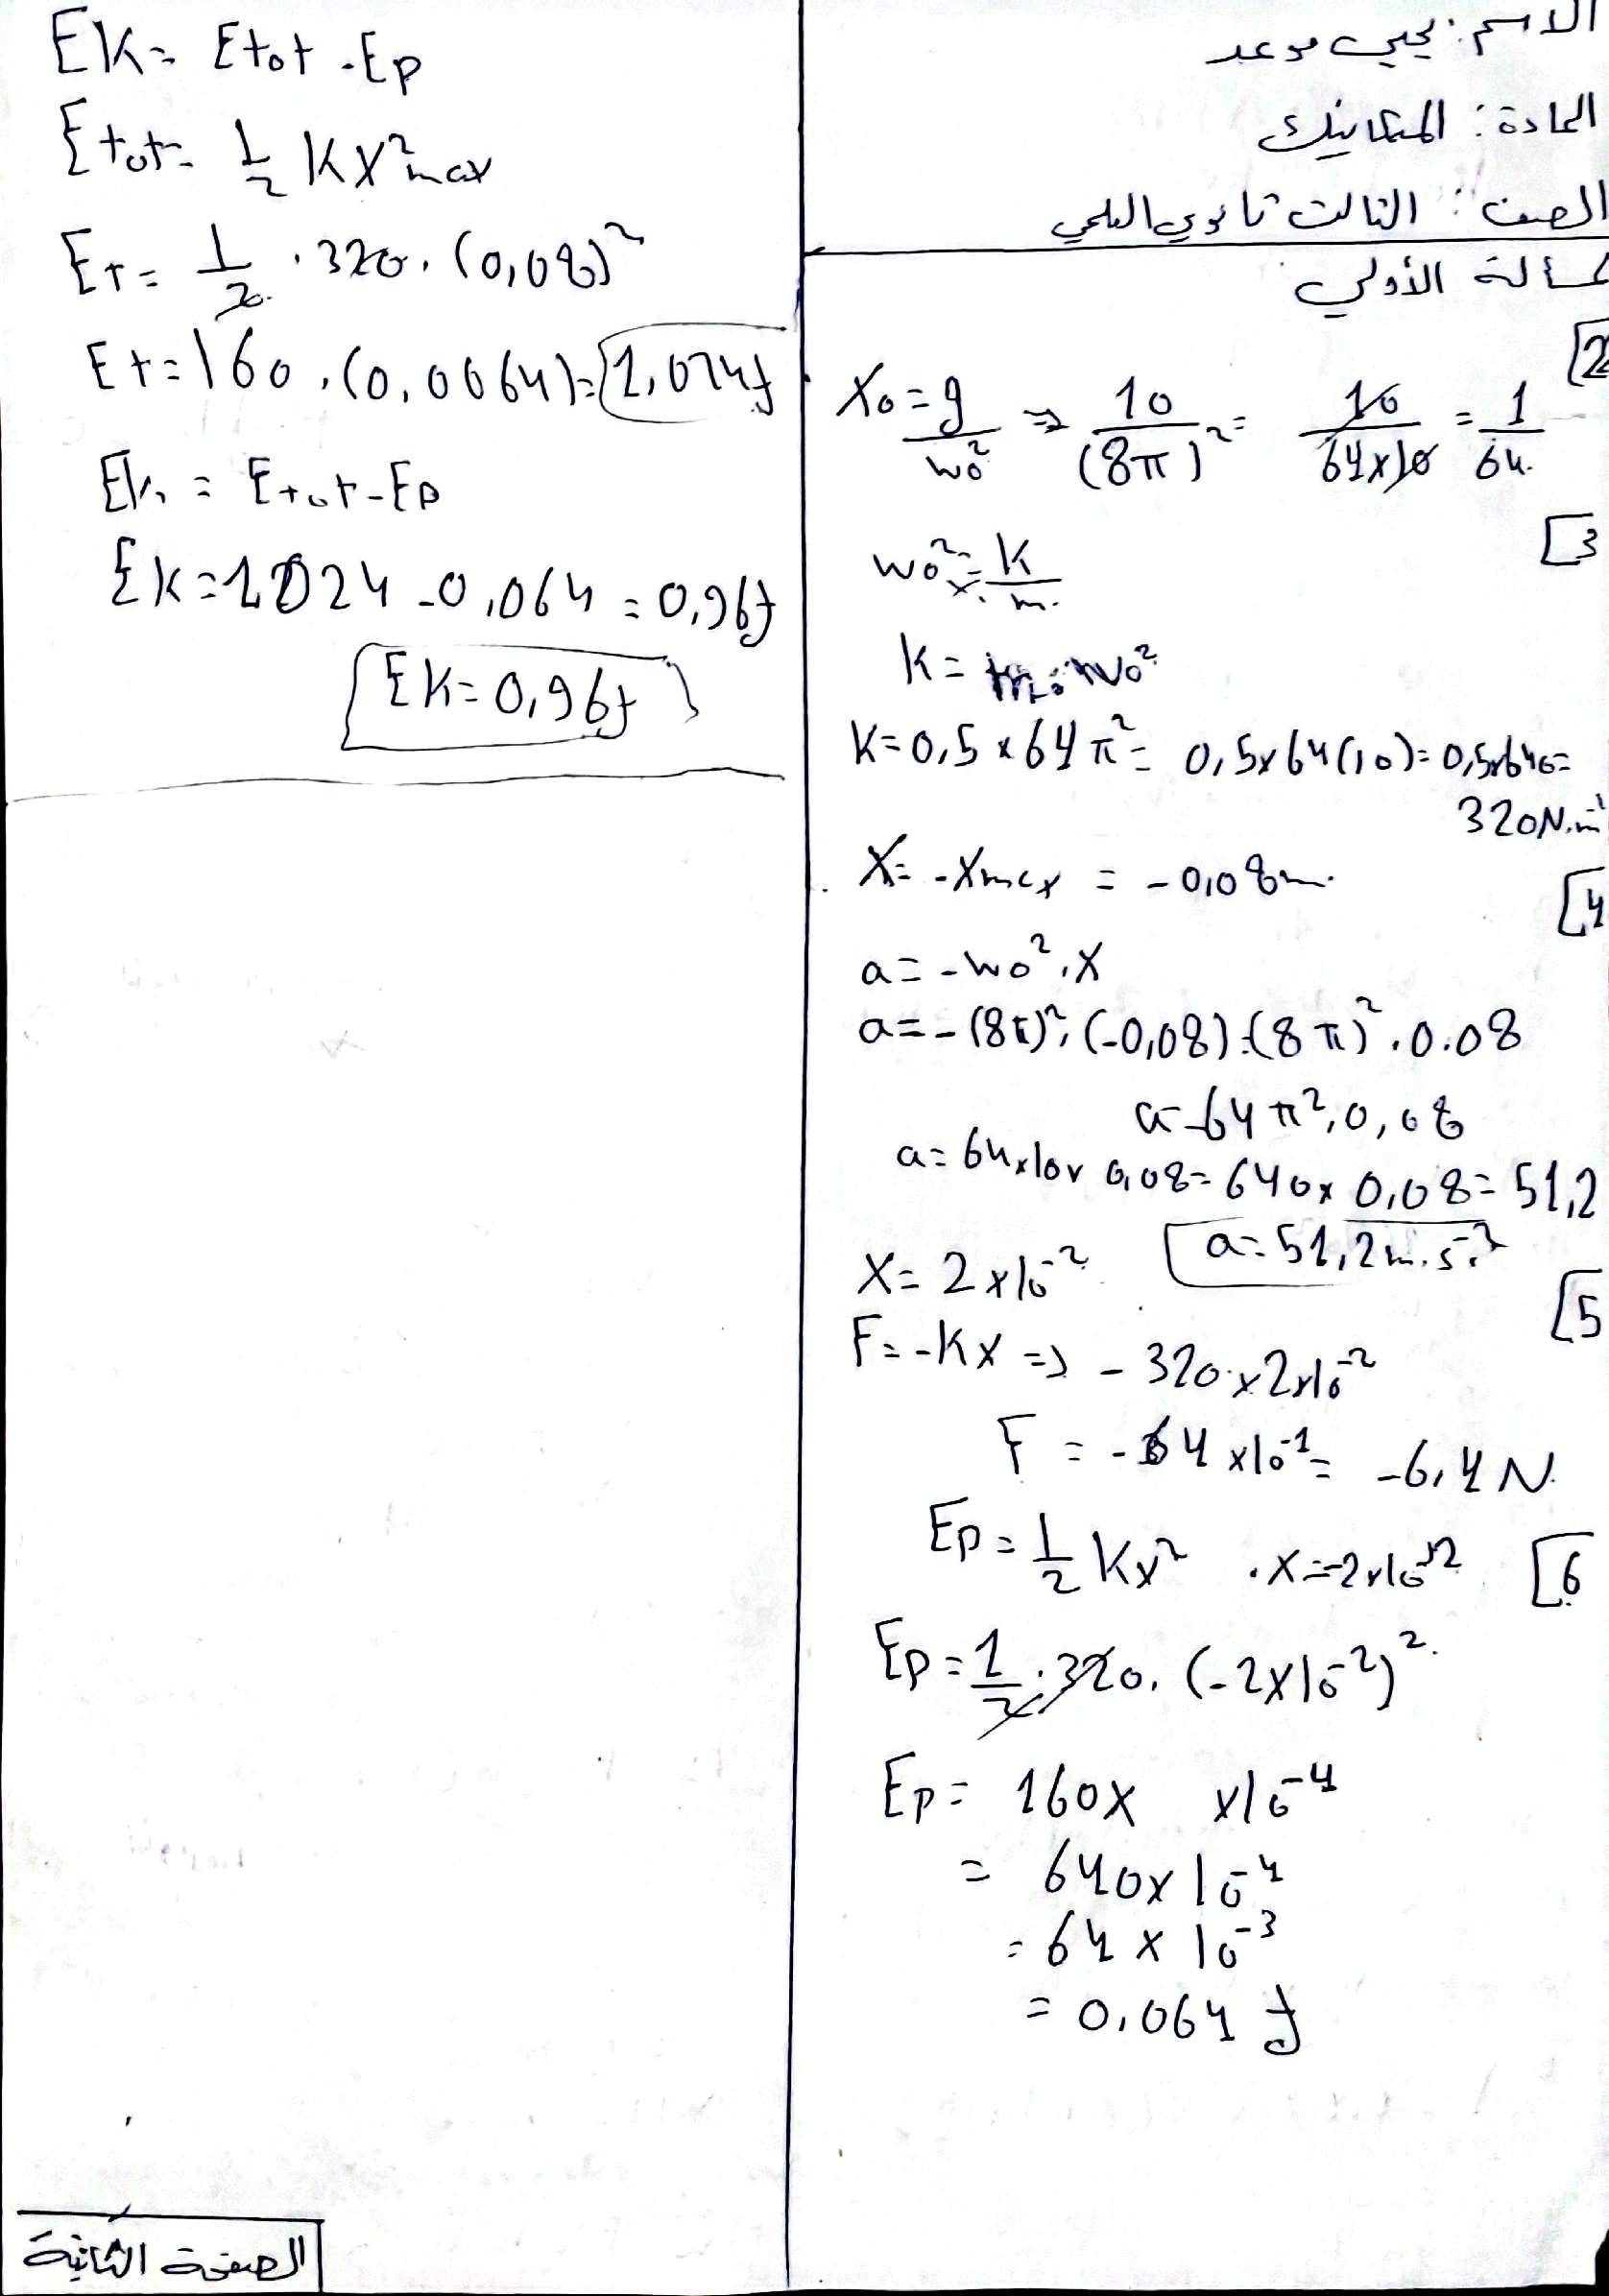 الاسم: يحيى موعد
المادة: الميكانيك
الصف: الثالث ثانوي العلمي
المسألة الأولى
[2
X0 = g/w0² => 10/(8π)² = 10/64x10 = 1/64.
[3
w0² = k/m.
k = m. w0²
K = 0,5 x 64 π² = 0,5x64(10) = 0,5x640 =
320N.m⁻¹
X = -Xmax = -0,08m.
[4
a = -w0².X
a = -(8π)². (-0,08) = (8π)². 0.08
a = 64 π². 0,08
a = 64x10x 0,08 = 640x 0,08 = 51,2
a = 51,2m.s⁻²
X = 2 x10⁻²
[5
F = -KX => - 320 x2x10⁻²
F = -64 x10⁻¹ = -6,4 N.
Ep = 1/2 Kx² . X = -2x10⁻² [6
Ep = 1/2 .320. (-2x10⁻²)².
Ep = 160x x10⁻⁴
= 640x10⁻⁴
= 64 x 10⁻³
= 0,064 J
EK = Etot - Ep
Etot = 1/2 KX²max
Et = 1/2 . 320. (0,08)²
Et = 160 .(0,0064) = 1,024J
Ek = Etot - Ep
EK = 1024 - 0,064 = 0,96J
EK = 0,96J
الصفحة الثانية